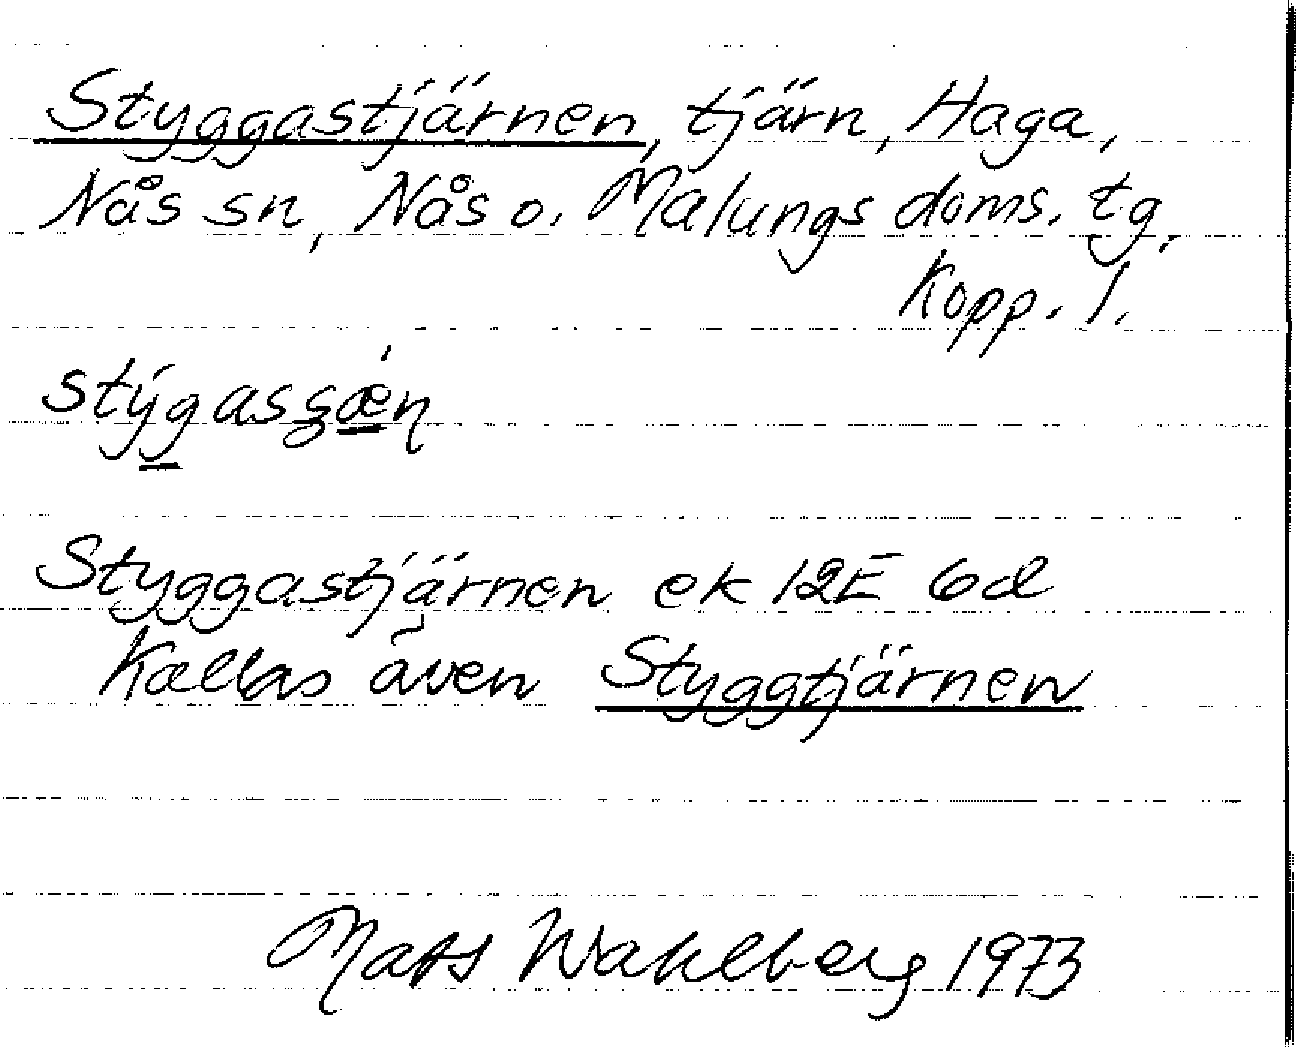 Styggastjärnen, tjärn, Haga,
Nås sn, Nås o. Malungs doms. tg.
Kopp. l.
Styggastjärnen ek 12E 6d
Kallas även Styggtjärnen
Mats Wahlberg 1973